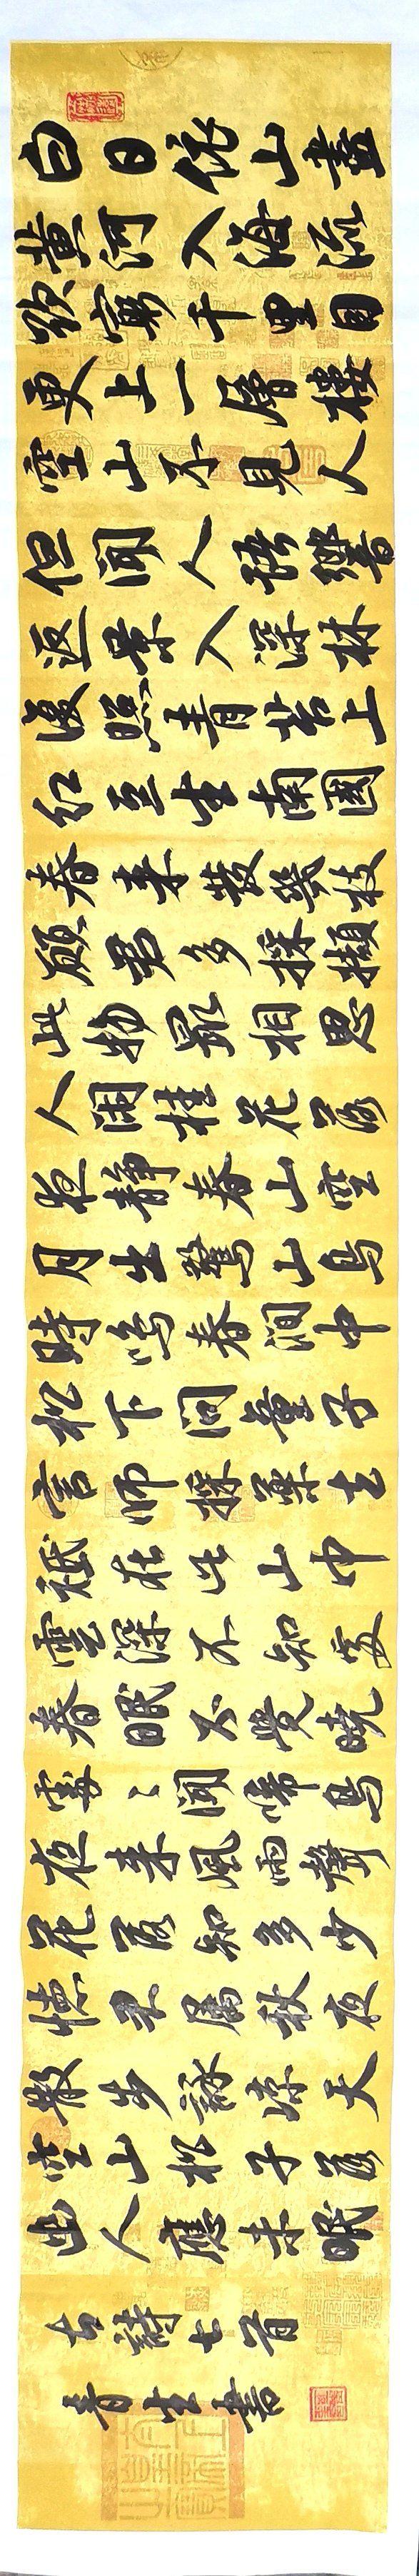 白日依山盡
黃河入海流
欲窮千里目
更上一層樓
空山不見人
但聞人語響
返景入深林
復照青苔上
紅豆生南國
春來發幾枝
願君多採擷
此物最相思
人閒桂花落
夜靜春山空
月出驚山鳥
時鳴春澗中
松下問童子
言師採藥去
祗在此山中
雲深不知處
春眠不覺曉
處〻聞啼鳥
夜來風雨聲
花落知多少
懷君屬秋夜
散步詠涼天
空山松子落
幽人應未眠
古詩七首
青生書